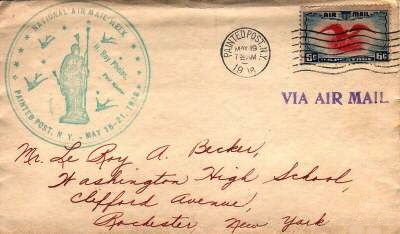 NATIONAL AIR MAIL WEEK
PAINTED POST, N. Y. - MAY 15-21, 1938
PAINTED POST, N.Y.
MAY 19
AM
AIR MAIL
6¢ 6¢
VIA AIR MAIL
Mr. Le Roy A. Becker,
Washington High School,
Clifford Avenue,
Rochester New York